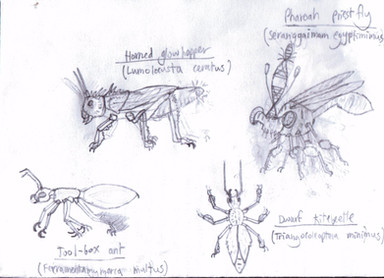 Horned glowhopper
(Lumolocusta ceratus)
Pharoah priest fly
(seranagaimam egyptominus
Tool-box ant
(Ferramentamyrmera multus)
Dwarf kiteyeetle
(Triangocoleoptera minimus)